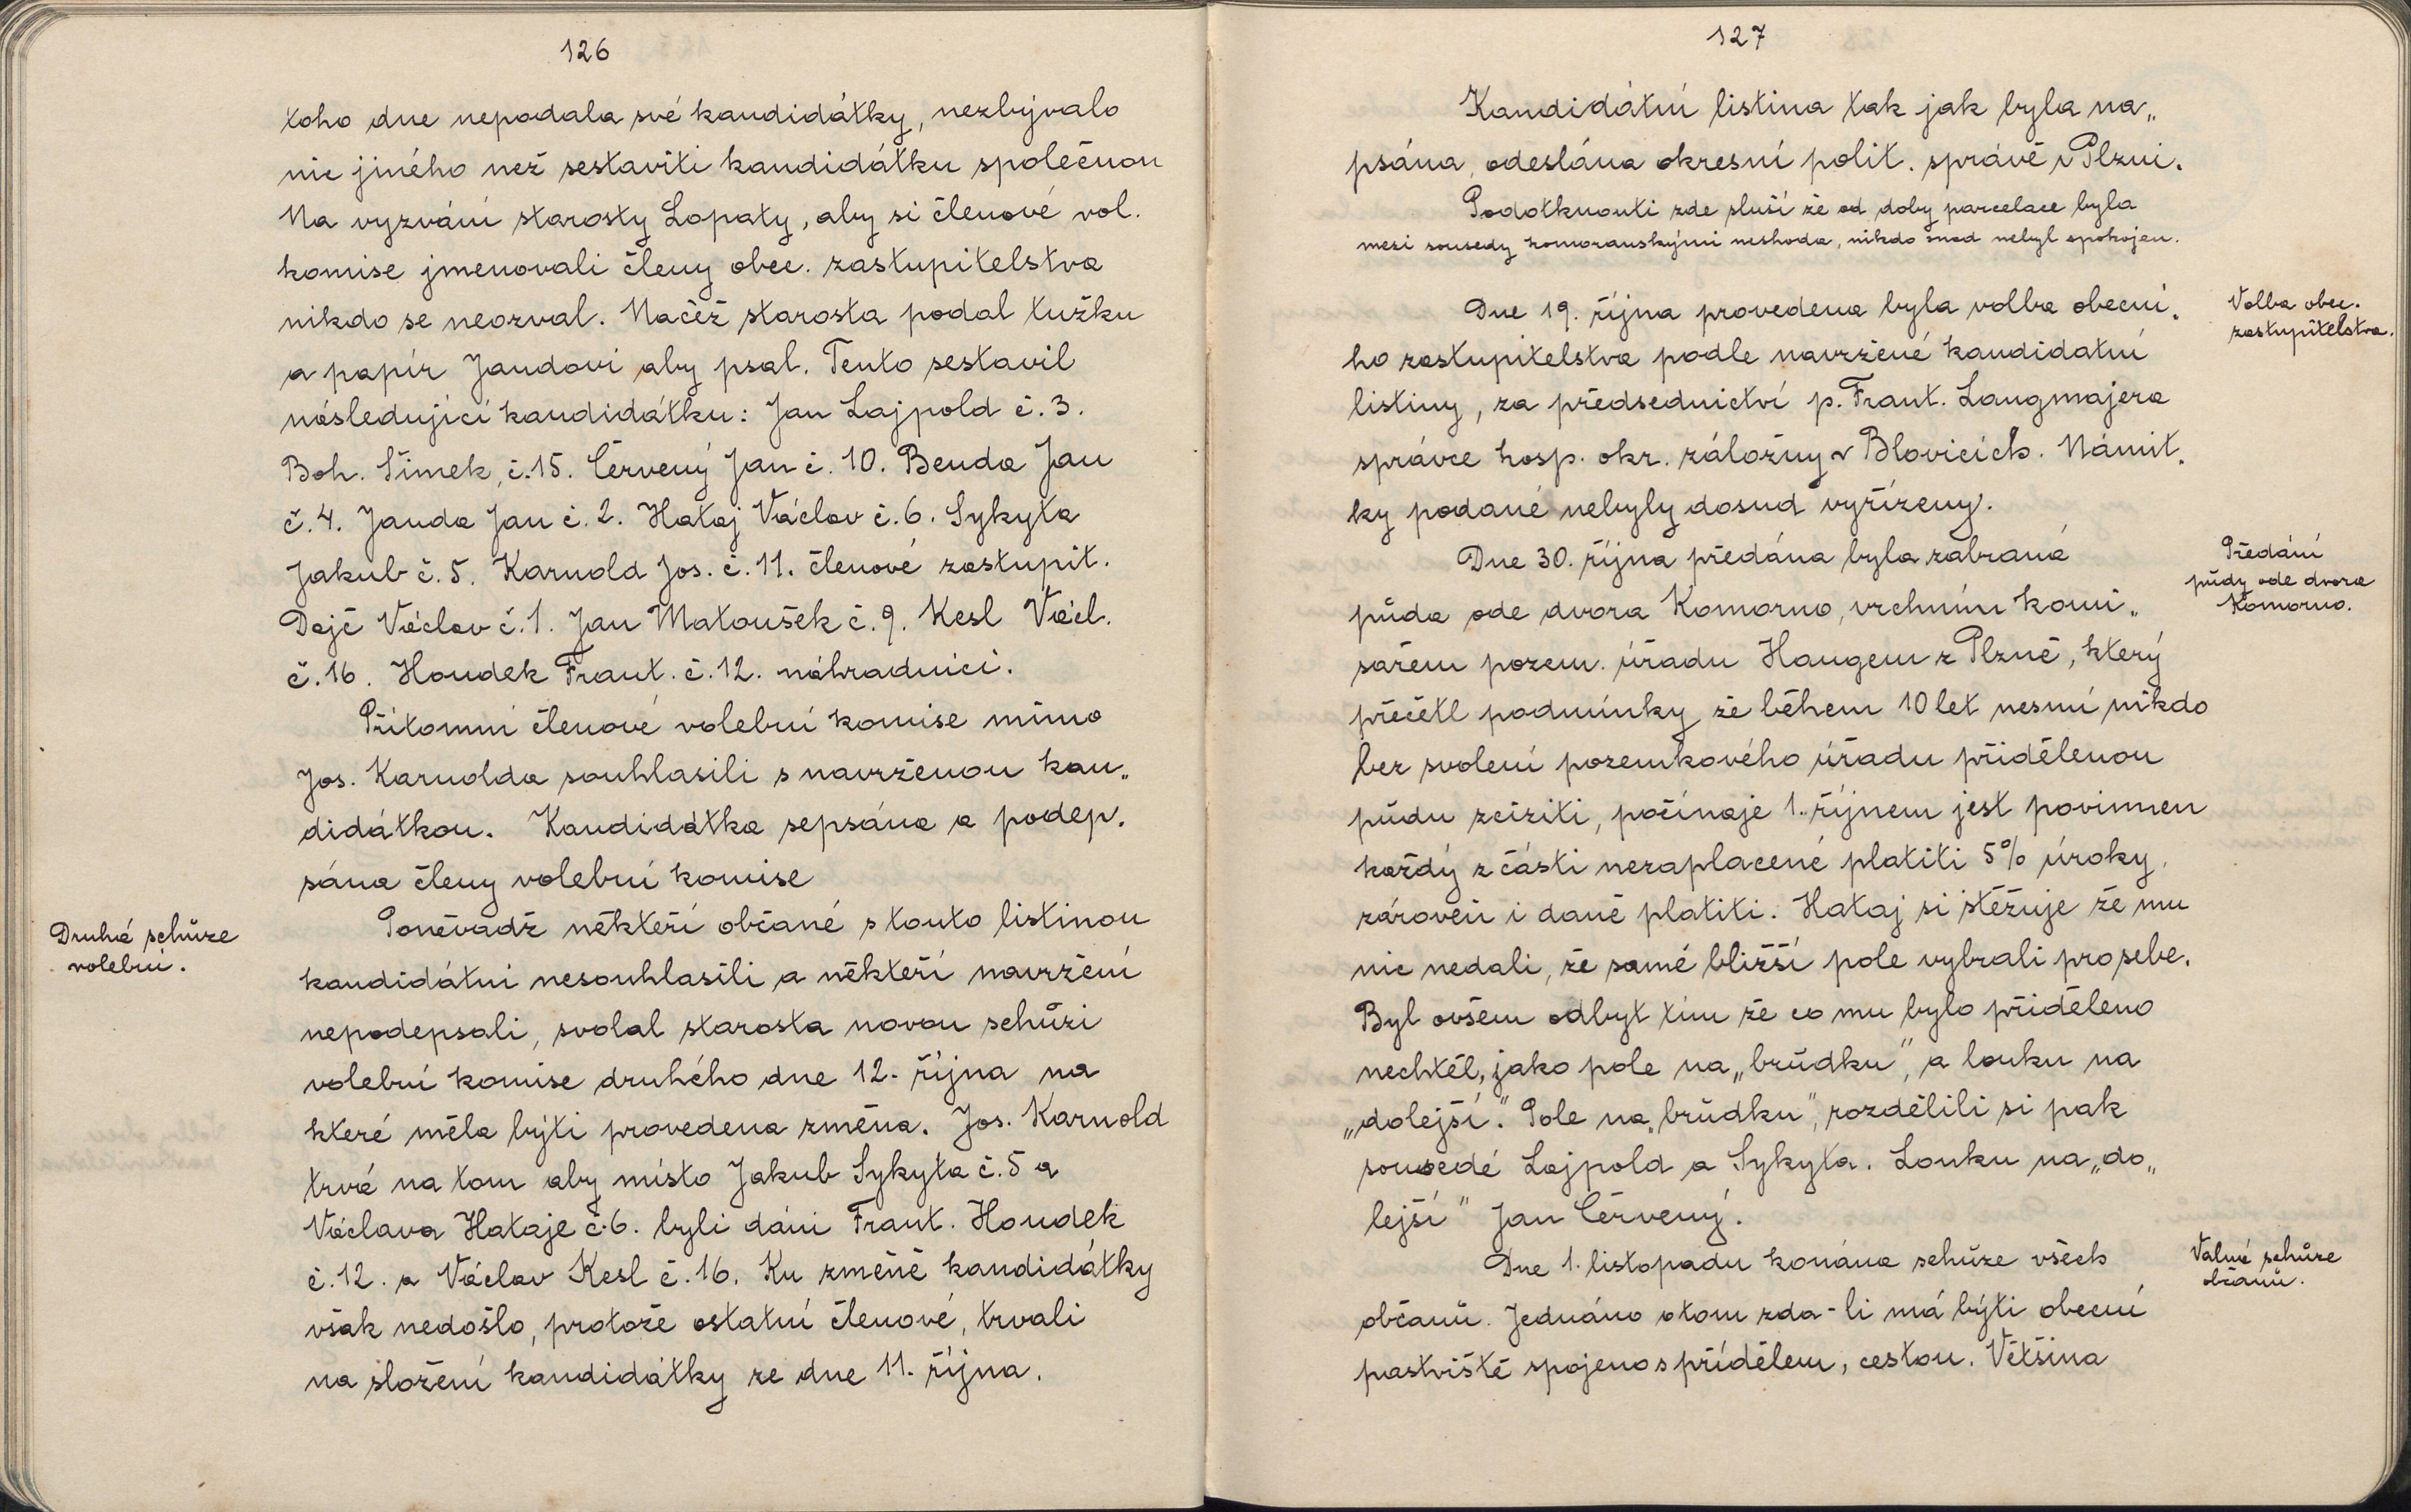 126
toho dne nepodala své kandidátky, nezbývalo
nic jiného než sestaviti kandidátku společnou
Na vyzvání starosty Lopaty, aby si členové vol.
komise jmenovali členy obec. zastupitelstva
nikdo se neozval. Načež starosta podal tužku
a papír Jandovi aby psal. Tento sestavil
následující kandidátku: Jan Lajpold č. 3.
Boh. Šimek, č. 15. Červený Jan č. 10. Benda Jan
č. 4. Janda Jan č. 2. Hataj Václav č. 6. Sykyta
Jakub č. 5. Karnold Jos. č. 11. členové zastupit.
Dajč Václav č. 1. Jan Matoušek č. 9. Kesl Václ.
č. 16. Houdek Frant. č. 12. náhradníci.
Přítomní členové volební komise mimo
Jos. Karnolda souhlasili s navrženou kan„
didátkou. Kandidátka sepsána a podep.
sána členy volební komise
Druhá schůze
volební.
Poněvadž někteří občané s touto listinou
kandidátní nesouhlasili a někteří navržení
nepodepsali, svolal starosta novou schůzi
volební komise druhého dne 12. října na
které měla býti provedena změna. Jos. Karnold
trvá na tom aby místo Jakub Sykyta č. 5 a
Václava Hataje č. 6. byli dáni Frant. Houdek
č. 12. a Václav Kesl č. 16. Ku změně kandidátky
však nedošlo, protože ostatní členové, trvali
na složení kandidátky ze dne 11. října.
127
Kandidátní listina tak jak byla na„
psána, odeslána okresní polit. správě v Plzni.
Podotknouti zde sluší že od doby parcelace byla
mezi sousedy komoranskými neshoda, nikdo snad nebyl spokojen.
Volba obec.
zastupitelstva.
Dne 19. října provedena byla volba obecní.
ho zastupitelstva podle navržené kandidatní
listiny, za předsednictví p. Frant. Langmajera
správce hosp. okr. záložny v Blovicích. Námit.
ky podané nebyly dosud vyřízeny.
Předání
půdy ode dvora
Komorno.
Dne 30. října předána byla zabraná
půda ode dvora Komorno, vrchním komi„
sařem pozem. úřadu Haugem z Plzně, který
přečetl podmínky že během 10 let nesmí nikdo
bez svolení pozemkového úřadu přidělenou
půdu zciziti, počínaje 1. říjnem jest povinnen
každý z části nezaplacené platiti 5% úroky,
zároveň i daně platiti. Hataj si stěžuje že mu
nic nedali, že samé bližší pole vybrali pro sebe.
Byl ovšem odbyt tím že co mu bylo přiděleno
nechtěl, jako pole na „brůdku", a louku na
„dolejší." Pole na „brůdku", rozdělili si pak
sousedé Lajpold a Sykyta. Louku na „do„
lejší" Jan Červený.
Valná schůze
občanů.
Dne 1. listopadu konána schůze všech
občanů. Jednáno o tom zda-li má býti obecní
pastviště spojeno s přídělem, cestou. Většina